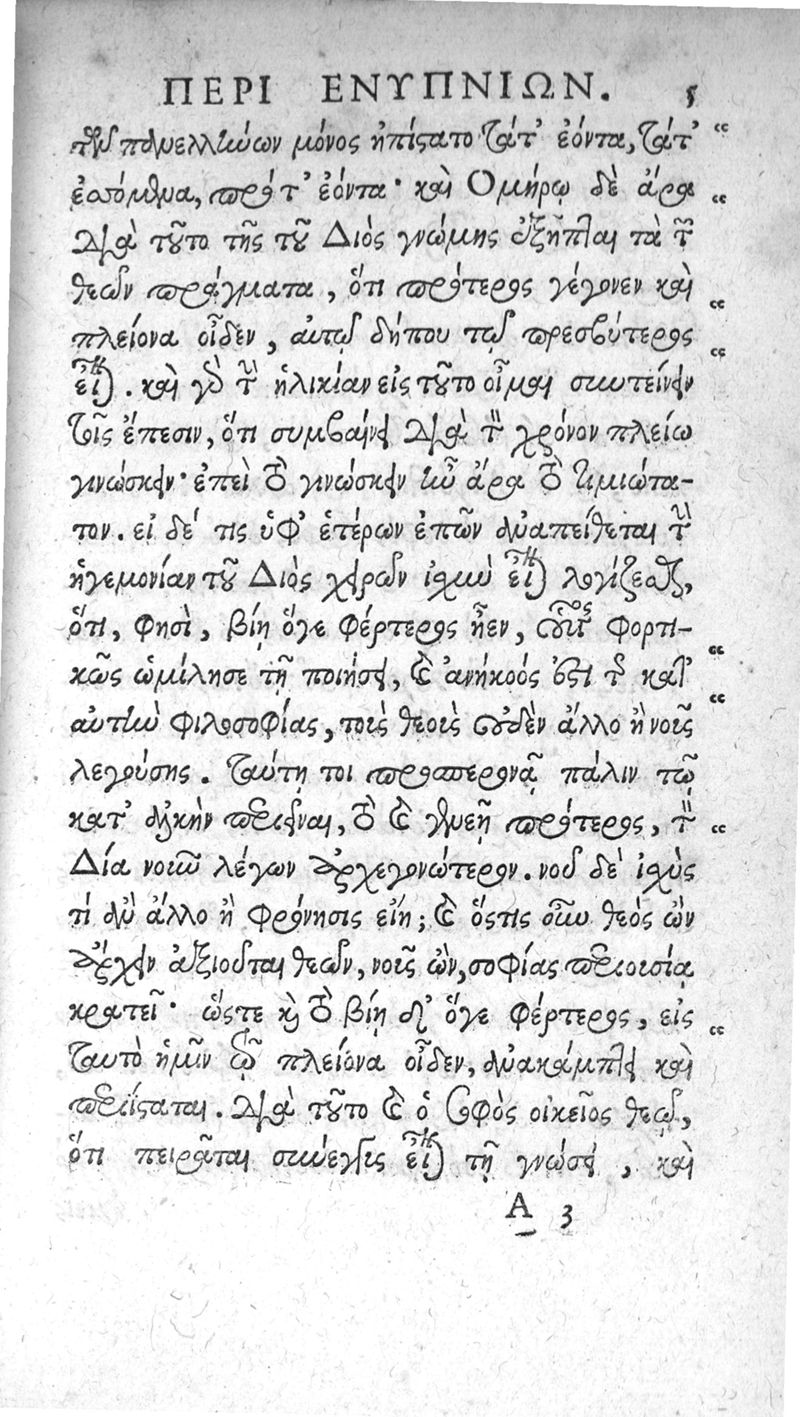 ΠΕΡΙ ΕΝΥΠΝΙΩΝ. 5
τῶν πανελλήνων μόνος ἠπίστατο τάτ᾽ ἐόντα, τάτ᾽ "
ἐσσόμενα, πρό τ᾽ ἐόντα· καὶ Ὁμήρῳ δὲ ἄρα "
διὰ τοῦτο τῆς τοῦ Διὸς γνώμης ἐξῆπται τὰ τῶν
θεῶν πράγματα, ὅτι πρότερος γέγονεν καὶ "
πλείονα οἶδεν, αὐτῷ δήπου τῷ πρεσβύτερος "
εἶναι. καὶ γὰρ τὴν ἡλικίαν εἰς τοῦτο οἶμαι συντείνειν
τοῖς ἔπεσιν, ὅτι συμβαίνει διὰ τὸν χρόνον πλείω
γινώσκειν· ἐπεὶ τὸ γινώσκειν ἦν ἄρα τὸ τιμιώτα-
τον. εἰ δέ τις ὑφ᾽ ἑτέρων ἐπῶν ἀναπείθεται τὴν
ἡγεμονίαν τοῦ Διὸς χειρῶν ἰσχὺν εἶναι λογίζεσθαι,
ὅτι, φησὶ, βίῃ ὅγε φέρτερος ἦεν, οὗτος φορτι-
κῶς ὡμίλησε τῇ ποιήσει, καὶ ἀνήκοός ἐστι τῆς κατ᾽ "
αὐτὴν φιλοσοφίας, τοὺς θεοὺς οὐδὲν ἄλλο ἢ νοῦς "
λεγούσης. ταύτῃ τοι προσπερονᾷ πάλιν τῷ
κατ᾽ ἀλκὴν περιεῖναι, τὸ καὶ γενεῇ πρότερος, τὸν "
Δία νοῦν λέγων ἀρχεγονώτερον. νοῦ δὲ ἰσχὺς
τί ἂν ἄλλο ἢ φρόνησις εἴη; καὶ ὅστις οὖν θεὸς ὢν
ἄρχειν ἀξιοῦται θεῶν, νοῦς ὢν, σοφίας περιουσίᾳ
κρατεῖ· ὥστε καὶ τὸ βίῃ δ᾽ ὅγε φέρτερος, εἰς "
ταυτὸ ἡμῖν τῷ πλείονα οἶδεν, ἀνακάμπτει καὶ
περιίσταται. διὰ τοῦτο καὶ ὁ σοφὸς οἰκεῖος θεῷ,
ὅτι πειρᾶται σύνεγγυς εἶναι τῇ γνώσει, καὶ
A 3